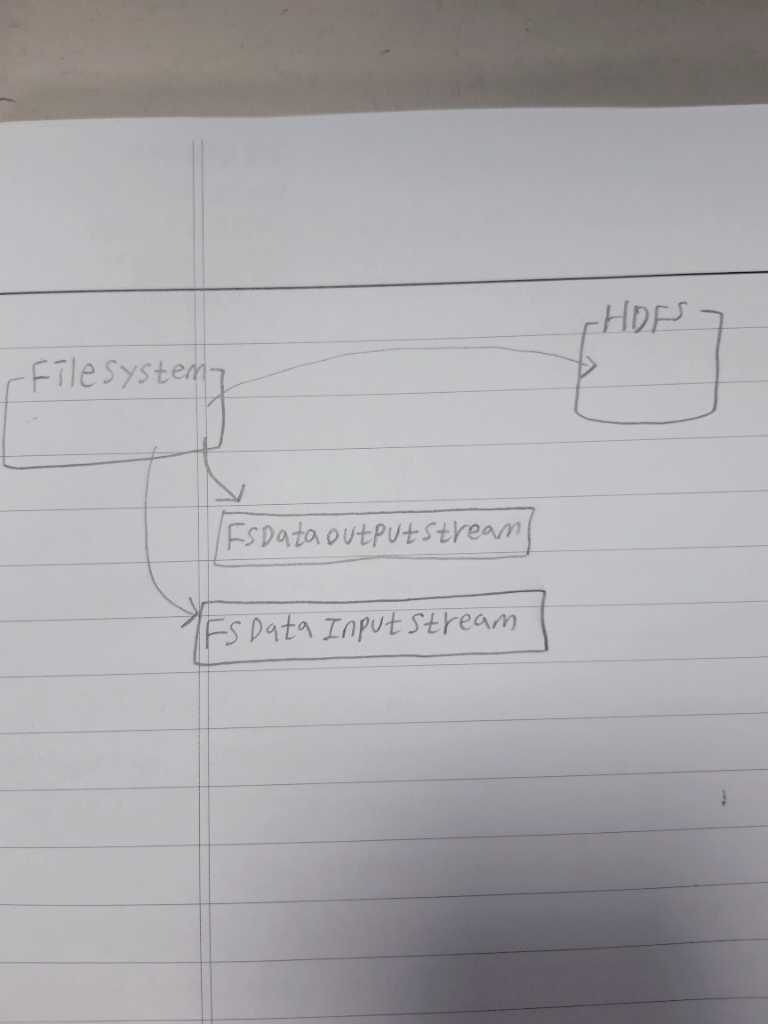 HDFS
FileSystem
FSDataOutputStream
FSDataInputStream